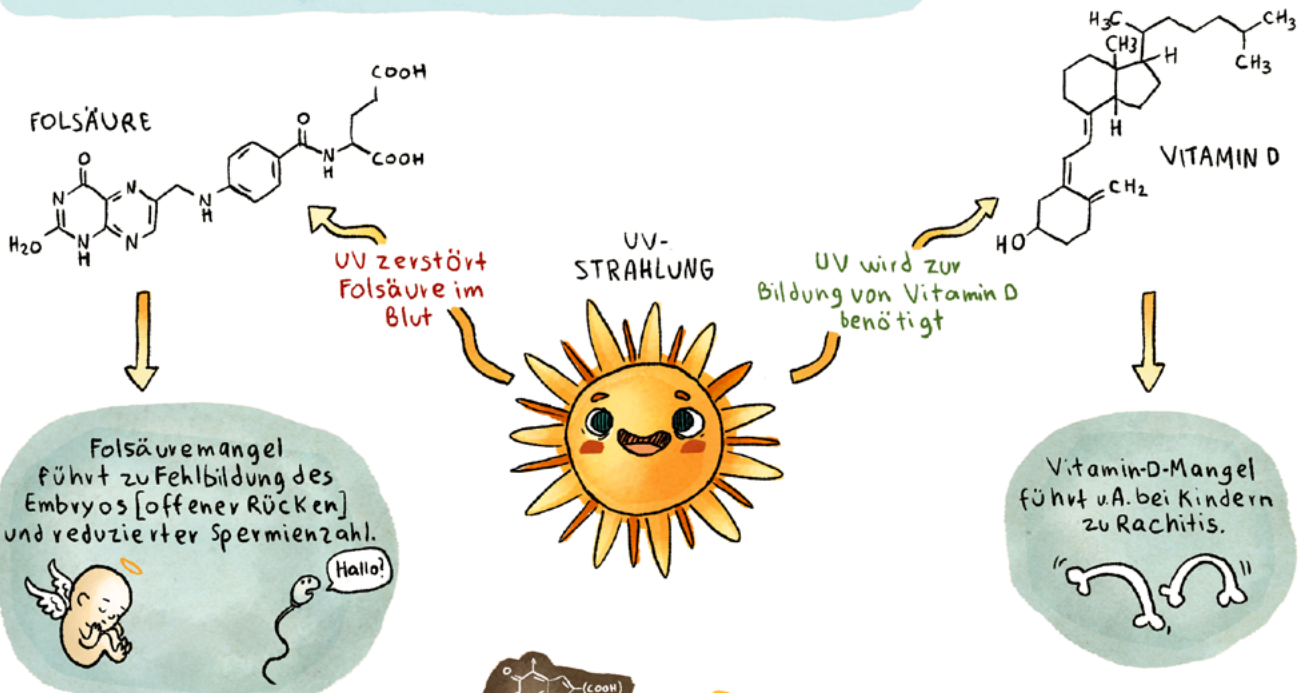 FOLSÄURE
COOH
O
N
H
COOH
O
N
N
N
H
H2O
N
H
N
UV zerstört
Folsäure im
Blut
UV-
STRAHLUNG
UV wird zur
Bildung von Vitamin D
benötigt
H3C
CH3
CH3
H
CH3
H
VITAMIN D
CH2
HO
Folsäuremangel
führt zu Fehlbildung des
Embryos [offener Rücken]
und reduzierter Spermienzahl.
Hallo?
Vitamin-D-Mangel
führt u.A. bei Kindern
zu Rachitis.
O
(COOH)